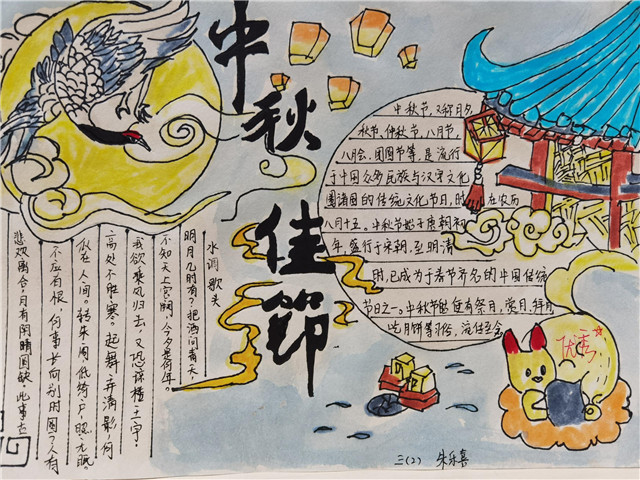 中秋佳節
中秋节，又称月夕、
秋节、仲秋节、八月节、
八月会、团圆节等，是流行
于中国众多民族与汉字文化
圈诸国的传统文化节日，时在农历
八月十五。中秋节始于唐朝初
年，盛行于宋朝，至明清
时，已成为于春节齐名的中国传统
节日之一。中秋节自便有祭月、赏月、拜月
吃月饼等习俗，流传至今
水调歌头
明月几时有？把酒问青天，
不知天上宫阙，今夕是何年。
我欲乘风归去，又恐琼楼玉宇，
高处不胜寒。起舞弄清影，何
似在人间。转朱阁，低绮户，照无眠。
不应有恨，何事长向别时圆？人有
悲欢离合，月有阴晴圆缺，此事古
优秀
三（2） 朱乐喜